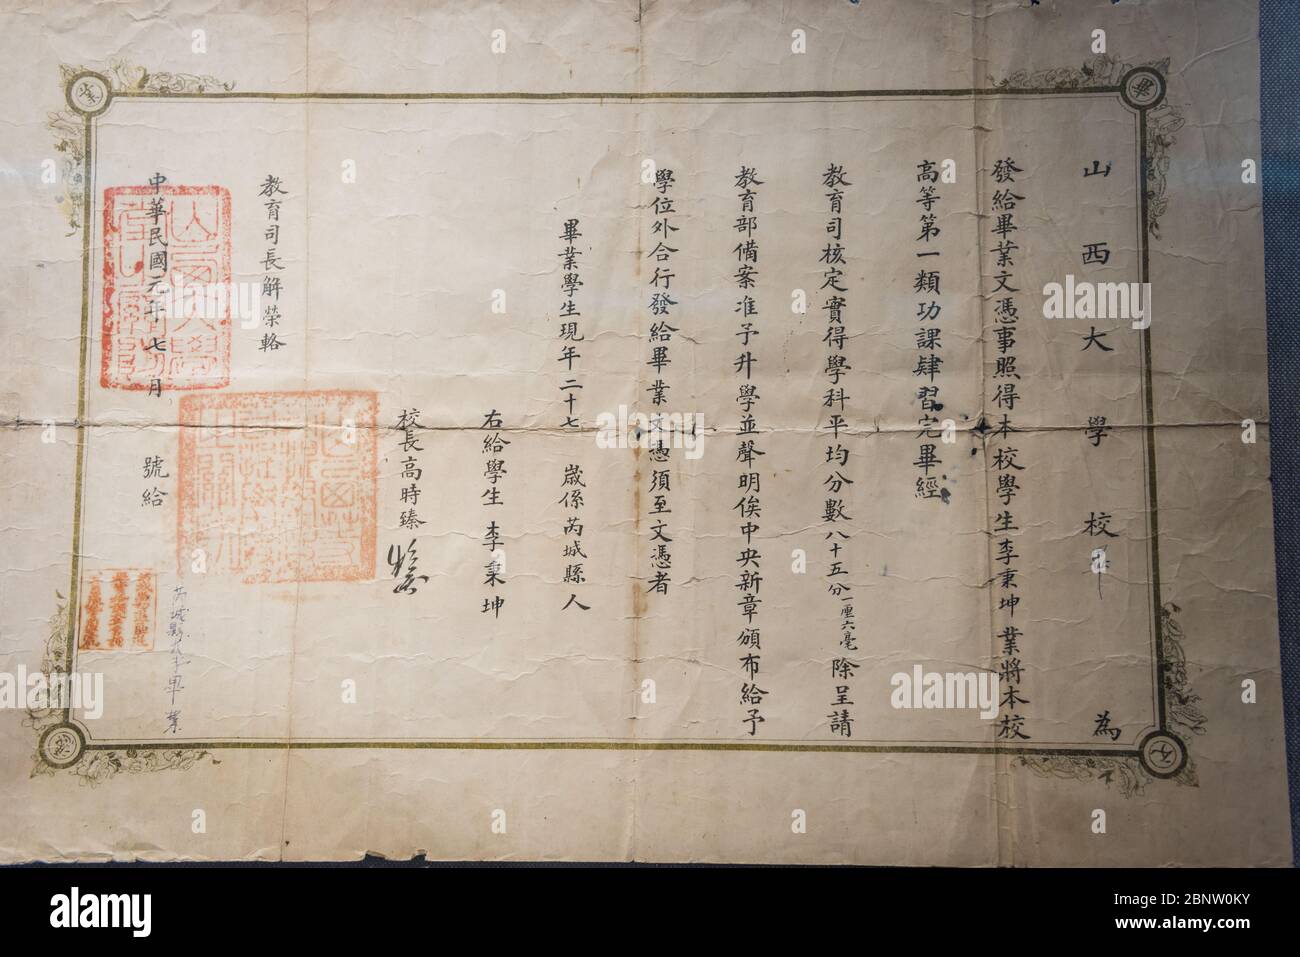 山西大學校 為
發給畢業文憑事照得本校學生李秉坤業將本校
高等第一類功課肄習完畢經
教育司核定實得學科平均分數八十五分一厘六毫除呈請
教育部備案准予升學並聲明俟中央新章頒布給予
學位外合行發給畢業文憑須至文憑者
畢業學生現年二十七歲係芮城縣人
右給學生李秉坤
校長高時臻
教育司長解榮輅
中華民國元年七月 號給
畢
業
文
憑
alamy
Image ID: 2BNW0KY
www.alamy.com